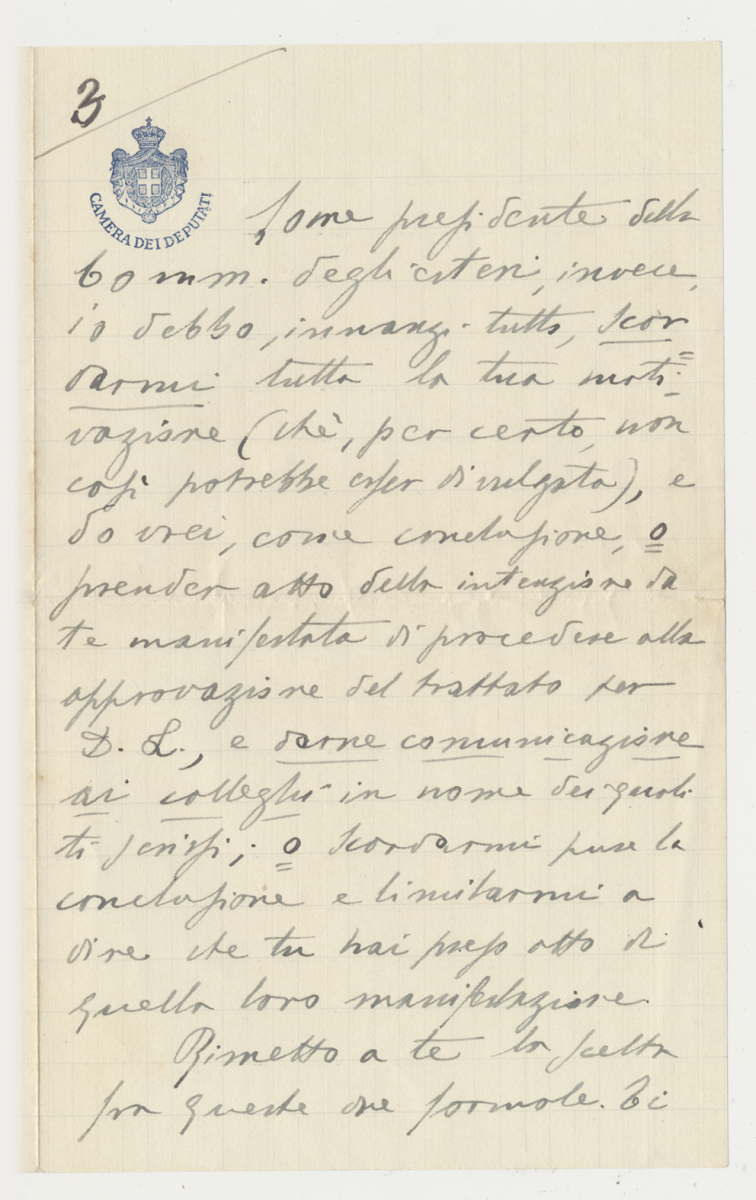 3
CAMERA DEI DEPUTATI
Come presidente della
Comm. degli esteri, invece,
io debbo, innanzi tutto, scor
darmi tutta la tua moti-
vazione (chè, per certo, non
così potrebbe esser divulgata), e
dovrei, come conclusione, o
prender atto della intenzione da
te manifestata di procedere alla
approvazione del trattato per
D. L., e darne comunicazione
ai colleghi in nome dei quali
ti scrissi; o scordarmi pure la
conclusione e limitarmi a
dire che tu hai preso atto di
quella loro manifestazione.
Rimetto a te la scelta
fra queste due formole. Ci